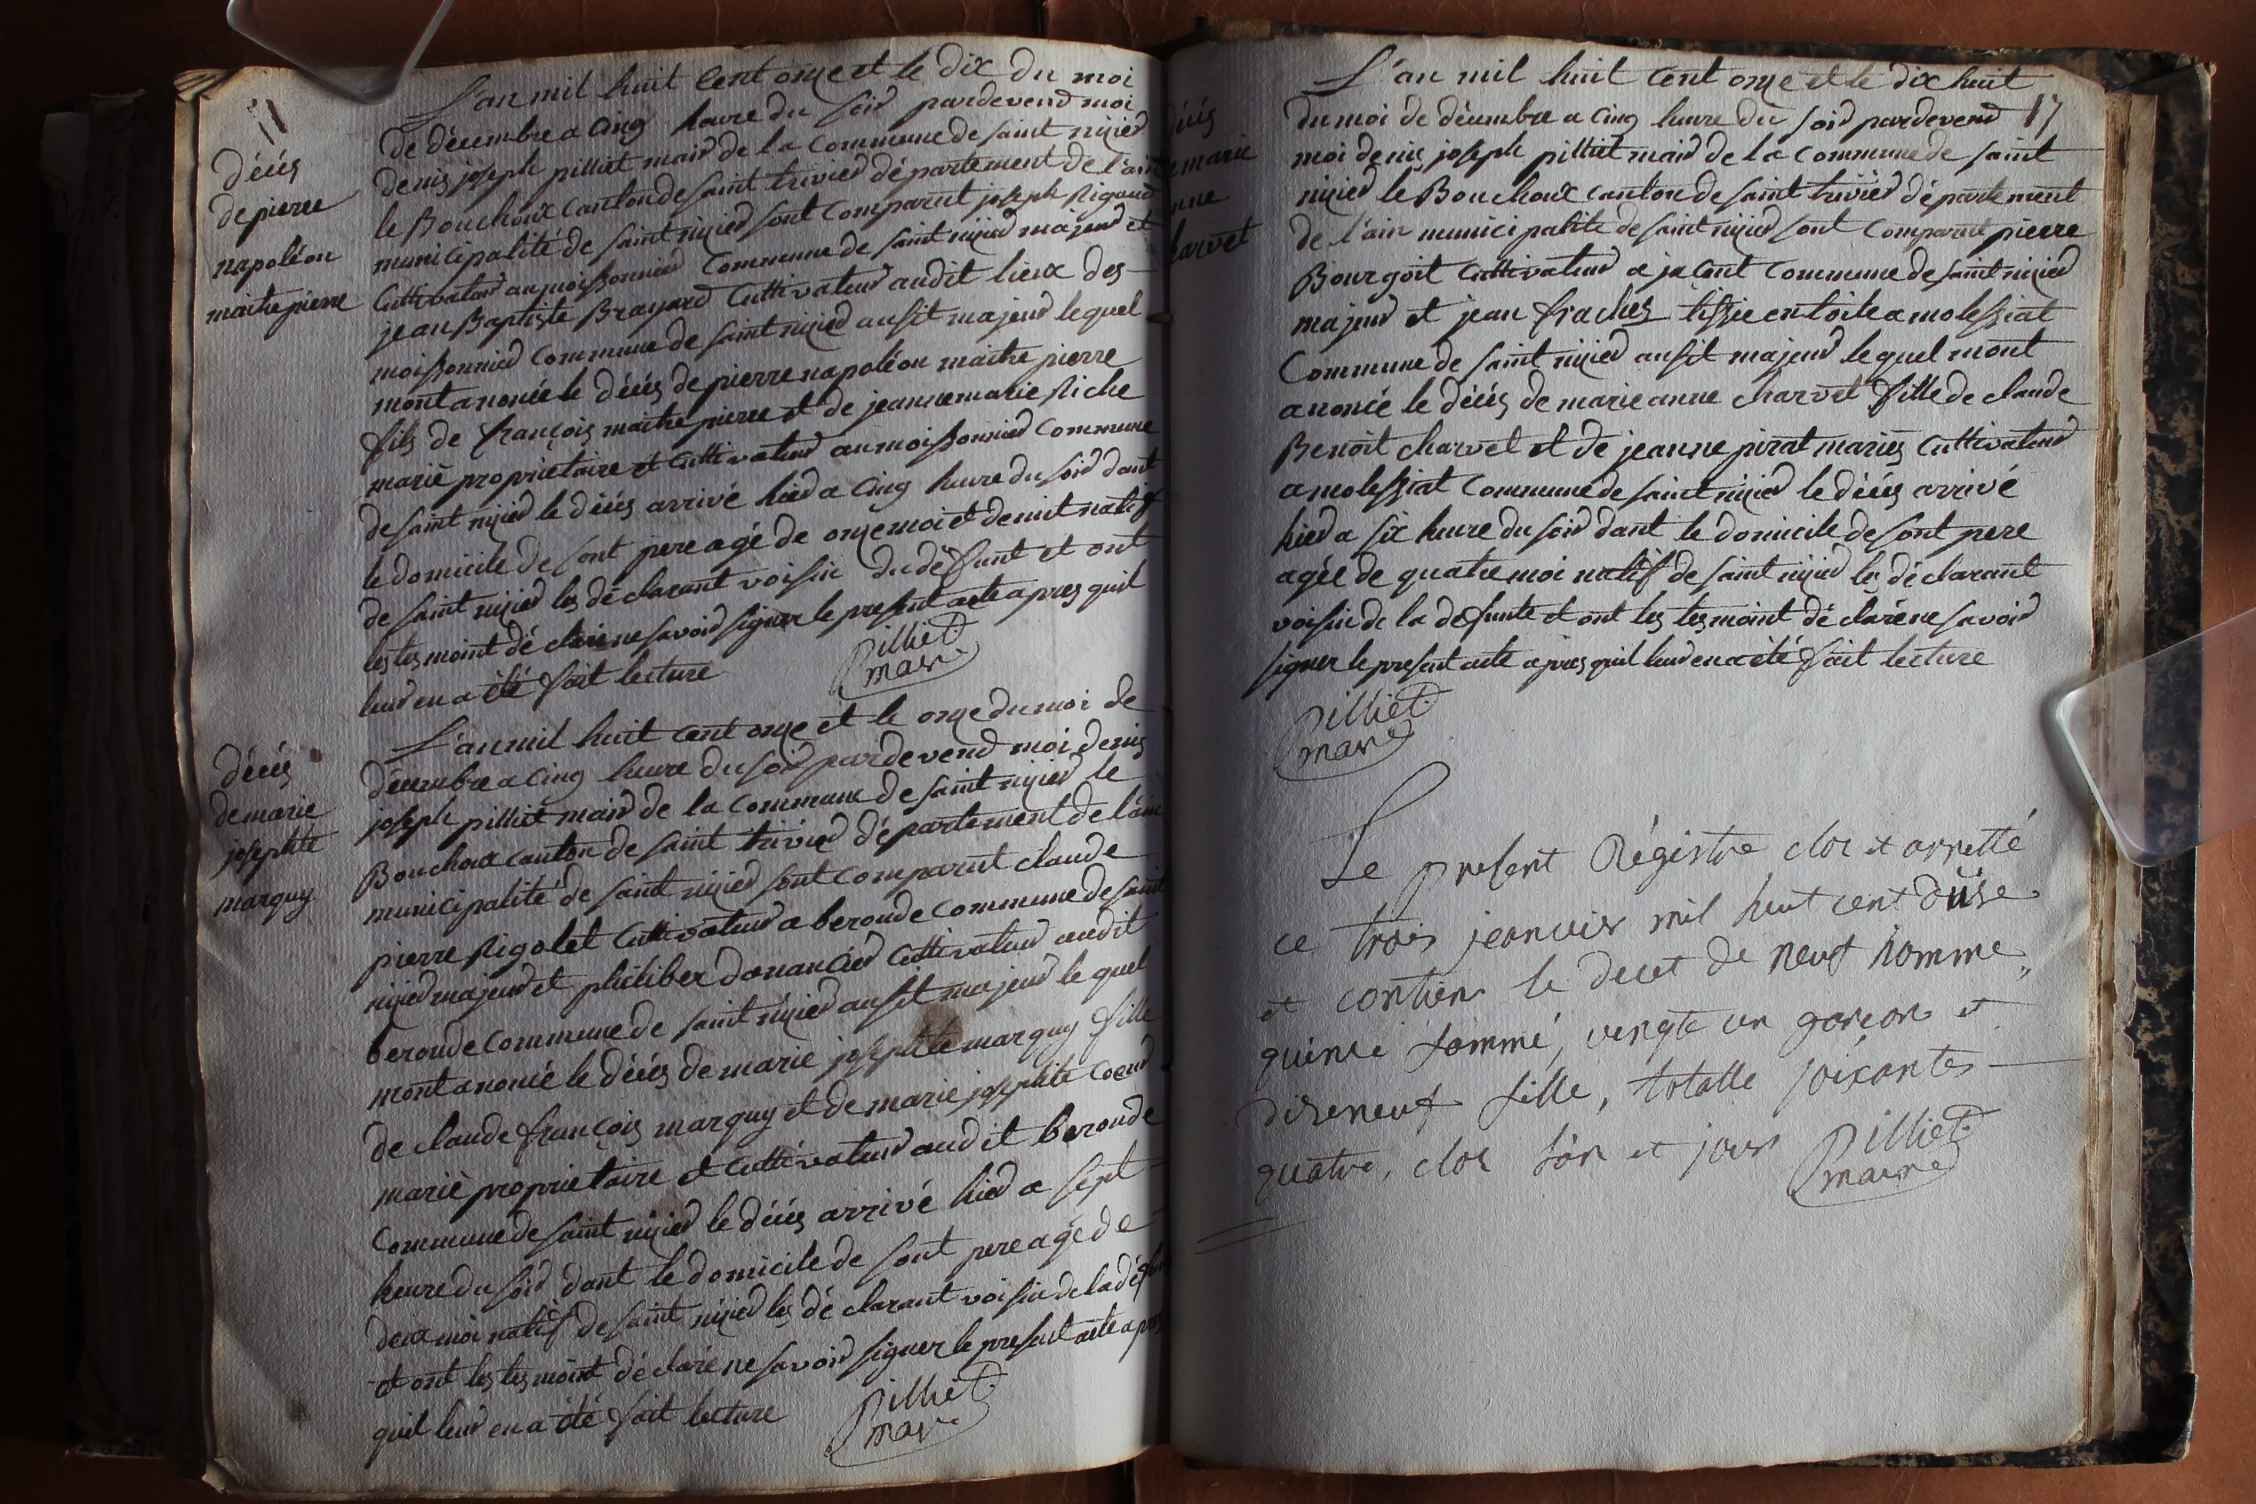 décés
de pierre
napoléon
maitre pierre
L'an mil huit cent onze et le dix du moi
de décembre a cinq heure du soir pardevend moi
denis joseph pilliet mair de la commune de saint nizier
le Bouchoux canton de saint trivier département de l'ain
municipalité de saint nizier sont comparut joseph Rigaud
cultivateur au moissonnier commune de saint nizier majeur et
jean Baptiste Brayard cultivateur audit lieux des
moissonnier commune de saint nizier ausit majeur lequel
mont anoncé le décés de pierre napoléon maitre pierre
fils de françois maitre pierre et de jeanne marie Riche
marié proprietaire et cultivateur au moissonnier commune
de saint nizier le décés arrivé hier a cinq heure du soir dant
le domicile de sont pere agé de onze moi et demit natif
de saint nizier les déclarant voisin du défunt et ont
les tesmoint déclaré ne savoir signer le present acte apres quil
leur en a été fait lecture
Pilliet
mair
décés
de marie
josephte
marguy
L'an mil huit cent onze et le onze du moi de
décembre a cinq heure du soir pardevend moi denis
joseph pilliet mair de la commune de saint nizier le
Bouchoux canton de saint trivier département de l'ain
municipalité de saint nizier sont comparut claude
pierre Rigolet cultivateur a beroude commune de saint
nizier majeur et philiber donancier cultivateur audit
beroude commune de saint nizier ausit majeur le quel
mont anoncé le décés de marie josephte marguy fille
de claude françois marguy et de marie josephte coeur
marié proprietaire et cultivateur audit beroude
commune de saint nizier le décés arrivé hier a sept
heure du soir dant le domicile de sont pere agé de
deux moi natif de saint nizier les déclarant voisin de la
et ont les tesmoint déclaré ne savoir signer le present acte apres
quil leur en a été fait lecture
Pilliet
mair
17
marie
L'an mil huit cent onze et le dix huit
du moi de décembre a cinq heure du soir pardevend
moi denis joseph pilliet mair de la commune de saint
nizier le Bouchoux canton de saint trivier département
de l'ain municipalité de saint nizier sont comparut pierre
Bourgoit cultivateur a jacont commune de saint nizier
majeur et jean fraches tissie en toile a molessiat
commune de saint nizier ausit majeur lequel mont
anoncé le décés de marie anne charvet fille de claude
Benoit charvet et de jeanne pirat mariés cultivateur
a molessiat commune de saint nizier le décés arrivé
hier a six heure du soir dant le domicile de sont pere
agée de quatre moi natif de saint nizier les déclarant
voisin de la defunte et ont les tesmoint déclaré ne savoir
signer le present acte apres quil leur en a été fait lecture
Pilliet
maire
Le present Régistre clos et arretté
ce trois jeanvier mil huit cent duse
et contien le decet de neuf homme,
quinse fammé, vengte un garçons et
diseneuf fille, totalle soixantes
quatre, clos l'an et jour
Pilliet
maire